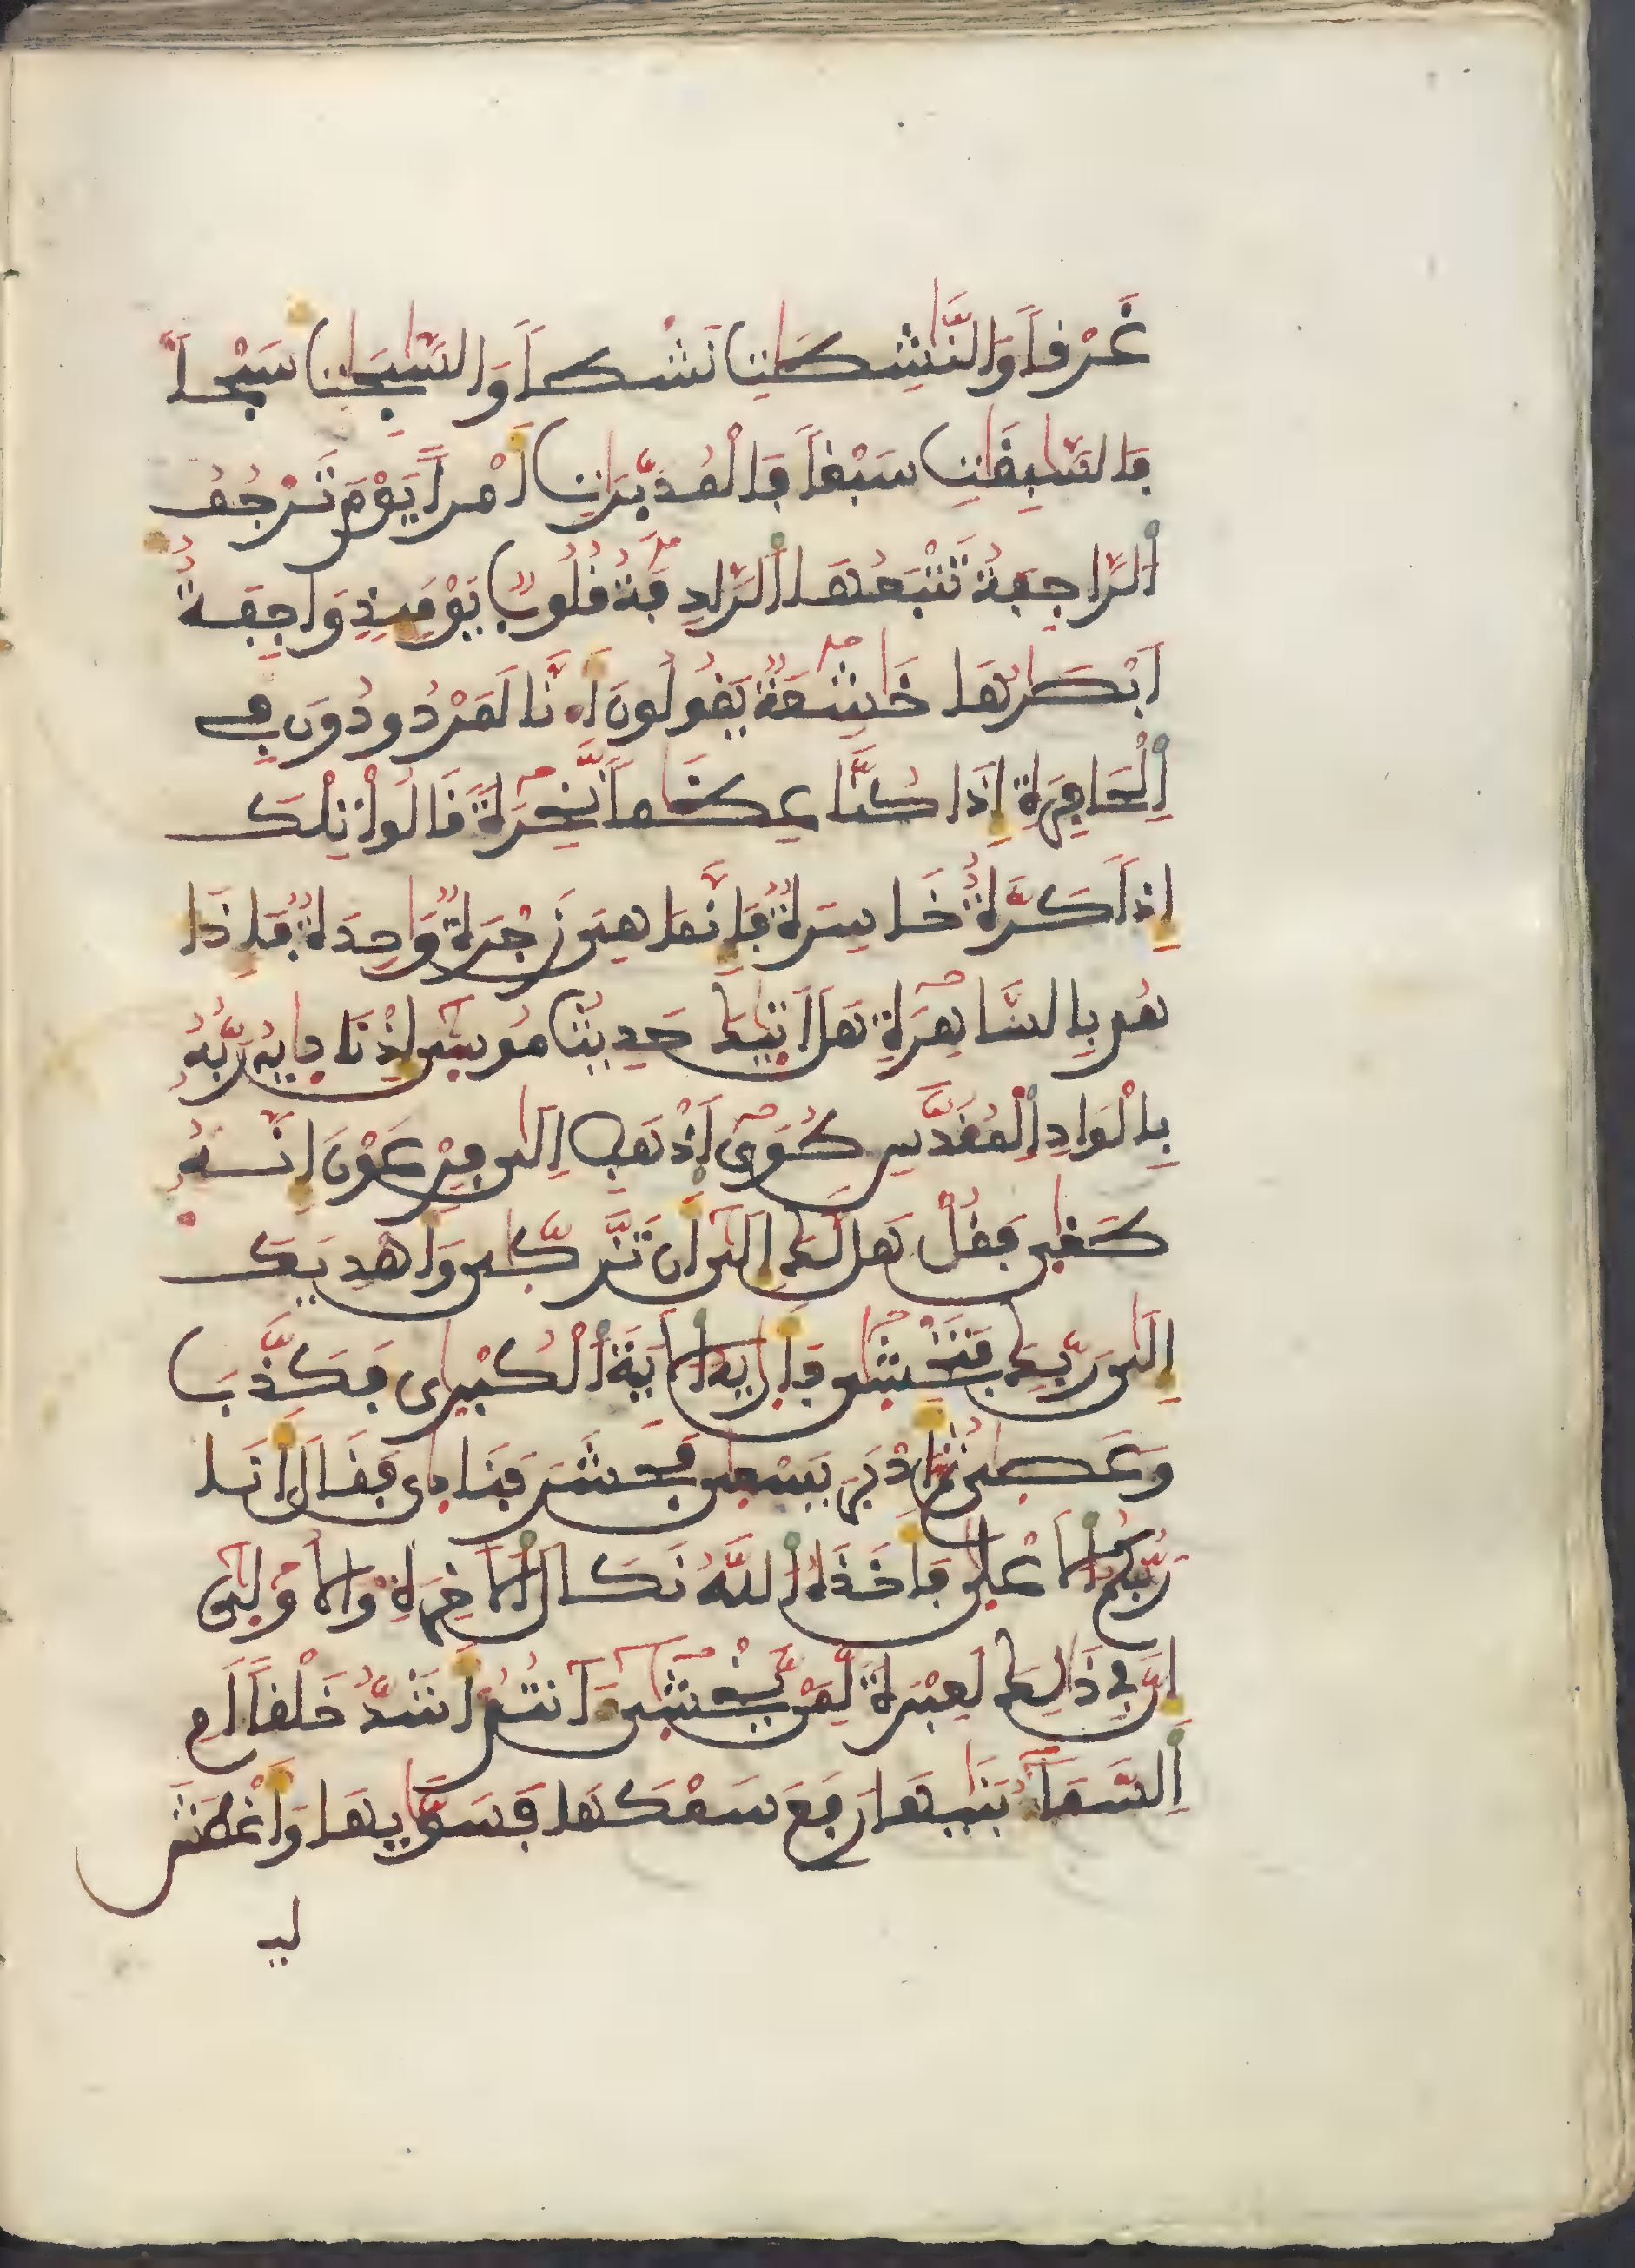 غَرْفاً وَالنَّٰشِطَٰتِ نَشْطاً وَالسَّٰبِحَٰتِ سَبْحاً
فَالسَّٰبِقَٰتِ سَبْقاً فَالْمُدَبِّرَٰتِ أَمْراً يَوْمَ تَرْجُفُ
اُ۬لرَّاجِفَةُ تَتْبَعُهَا اَ۬لرَّادِفَةُ قُلُوبٌ يَوْمَئِذٍ وَاجِفَةٌ
اَبْصَٰرُهَا خَٰشِعَةٌ يَقُولُونَ أَ.نَّا لَمَرْدُودُونَ فِے
اِ۬لْحَافِرَةِ إِذَا كُنَّا عِظَٰماً نَّخِرَةً قَالُواْ تِلْكَ
إِذاً كَرَّةٌ خَاسِرَةٌ فَإِنَّمَا هِيَ زَجْرَةٌ وَٰحِدَةٌ فَإِذَا
هُم بِالسَّاهِرَةِ هَلَ اَتٰيكَ حَدِيثُ مُوسٰىٓ إِذْ نَادٰيهُ رَبُّهُ
بِالْوَادِ اِ۬لْمُقَدَّسِ طُوَى اَ۪ذْهَبِ اِلَىٰ فِرْعَوْنَ إِنَّهُ
طَغٰى فَقُلْ هَل لَّكَ إِلَىٰٓ أَن تَزَّكّٰى وَأَهْدِيَكَ
إِلَىٰ رَبِّكَ فَتَخْشٰى فَأَرٰيهُ اُ۬لَايَةَ اَ۬لْكُبْرٰى فَكَذَّبَ
وَعَصٰى ثُمَّ أَدْبَرَ يَسْعٰى فَحَشَرَ فَنَادٰى فَقَالَ أَنَا
رَبُّكُمُ اُ۬لَاعْلٰى فَأَخَذَهُ اُ۬للَّهُ نَكَالَ اَ۬لَاخِرَةِ وَالُاولٰىٓ
إِنَّ فِے ذَٰلِكَ لَعِبْرَةً لِّمَنْ يَّخْشٰىٓ ءَآنتُمُۥٓ أَشَدُّ خَلْقاً اَمِ
اِ۬لسَّمَآءُ بَنٰيهَا رَفَعَ سَمْكَهَا فَسَوّٰيهَا وَأَغْطَشَ
ليـ